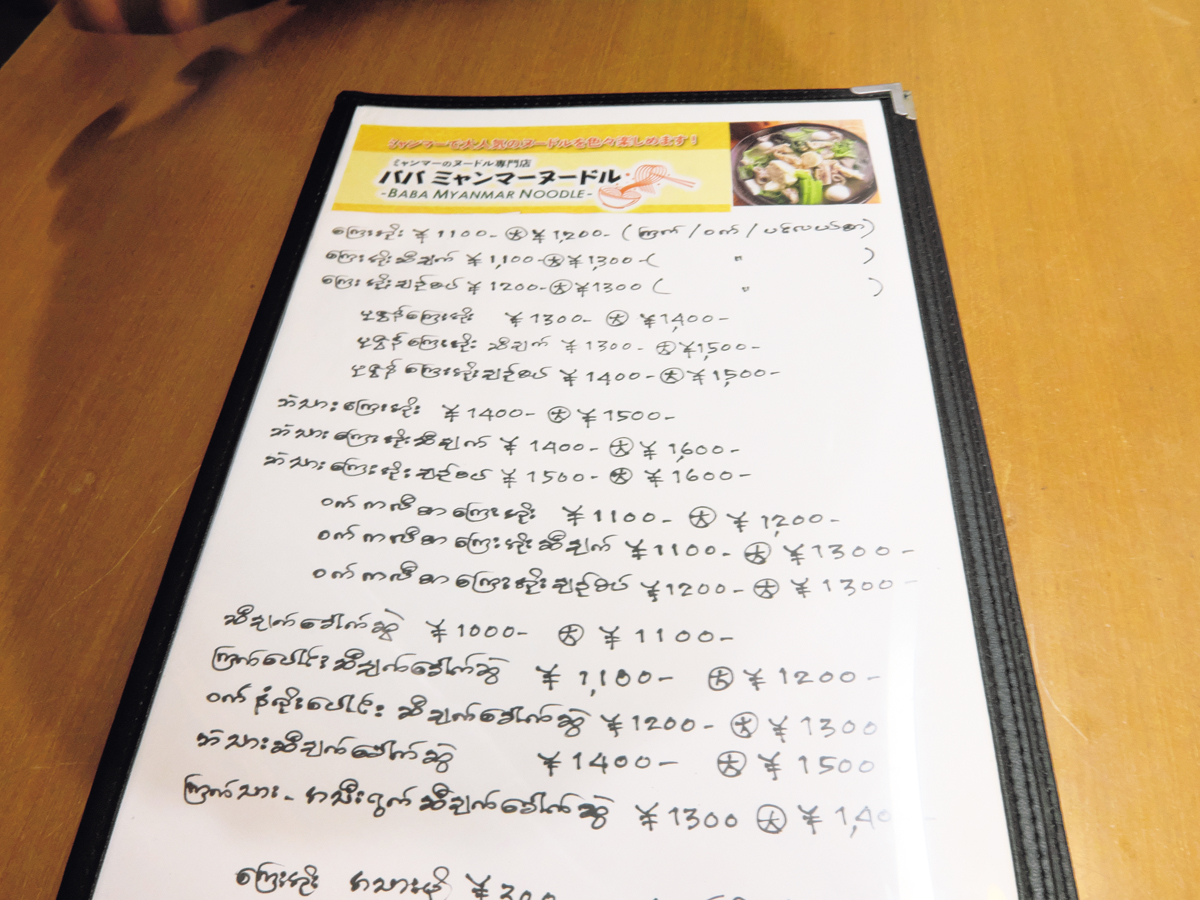 ミャンマーで大人気のヌードルを色々楽しめます！
ミャンマーのヌードル専門店
ババ ミャンマーヌードル
-BABA MYANMAR NOODLE-
ကြေးအိုး ¥1100- 大 ¥1,200- (ကြက်/ဝက်/ပင်လယ်စာ)
ကြေးအိုးဆီချက် ¥1,100- 大 ¥1,300-( " )
ကြေးအိုးချဉ်စပ် ¥1200- 大 ¥1300 ( " )
ပုစွန်ကြေးအိုး ¥1300- 大 ¥1,400-
ပုစွန်ကြေးအိုး ဆီချက် ¥1300- 大 ¥1,500-
ပုစွန်ကြေးအိုးချဉ်စပ် ¥1400- 大 ¥1,500-
ဘဲသားကြေးအိုး ¥1400- 大 ¥1500-
ဘဲသားကြေးအိုးဆီချက် ¥1400- 大 ¥1,600-
ဘဲသားကြေးအိုးချဉ်စပ် ¥1500- 大 ¥1600-
ဝက်ကလီစာကြေးအိုး ¥1100- 大 ¥1,200-
ဝက်ကလီစာကြေးအိုးဆီချက် ¥1100- 大 ¥1300-
ဝက်ကလီစာကြေးအိုးချဉ်စပ် ¥1200- 大 ¥1300-
ဆီချက်ခေါက်ဆွဲ ¥1000- 大 ¥1100-
ကြက်ပေါင်းဆီချက်ခေါက်ဆွဲ ¥1,100- 大 ¥1200-
ဝက်နံရိုးပေါင်းဆီချက်ခေါက်ဆွဲ ¥1200- 大 ¥1300
ဘဲသားဆီချက်ခေါက်ဆွဲ ¥1400- 大 ¥1500
ကြက်သား- ဆီချက်ခေါက်ဆွဲ ¥1300 大 ¥1,40
ကြေးအိုး ¥300